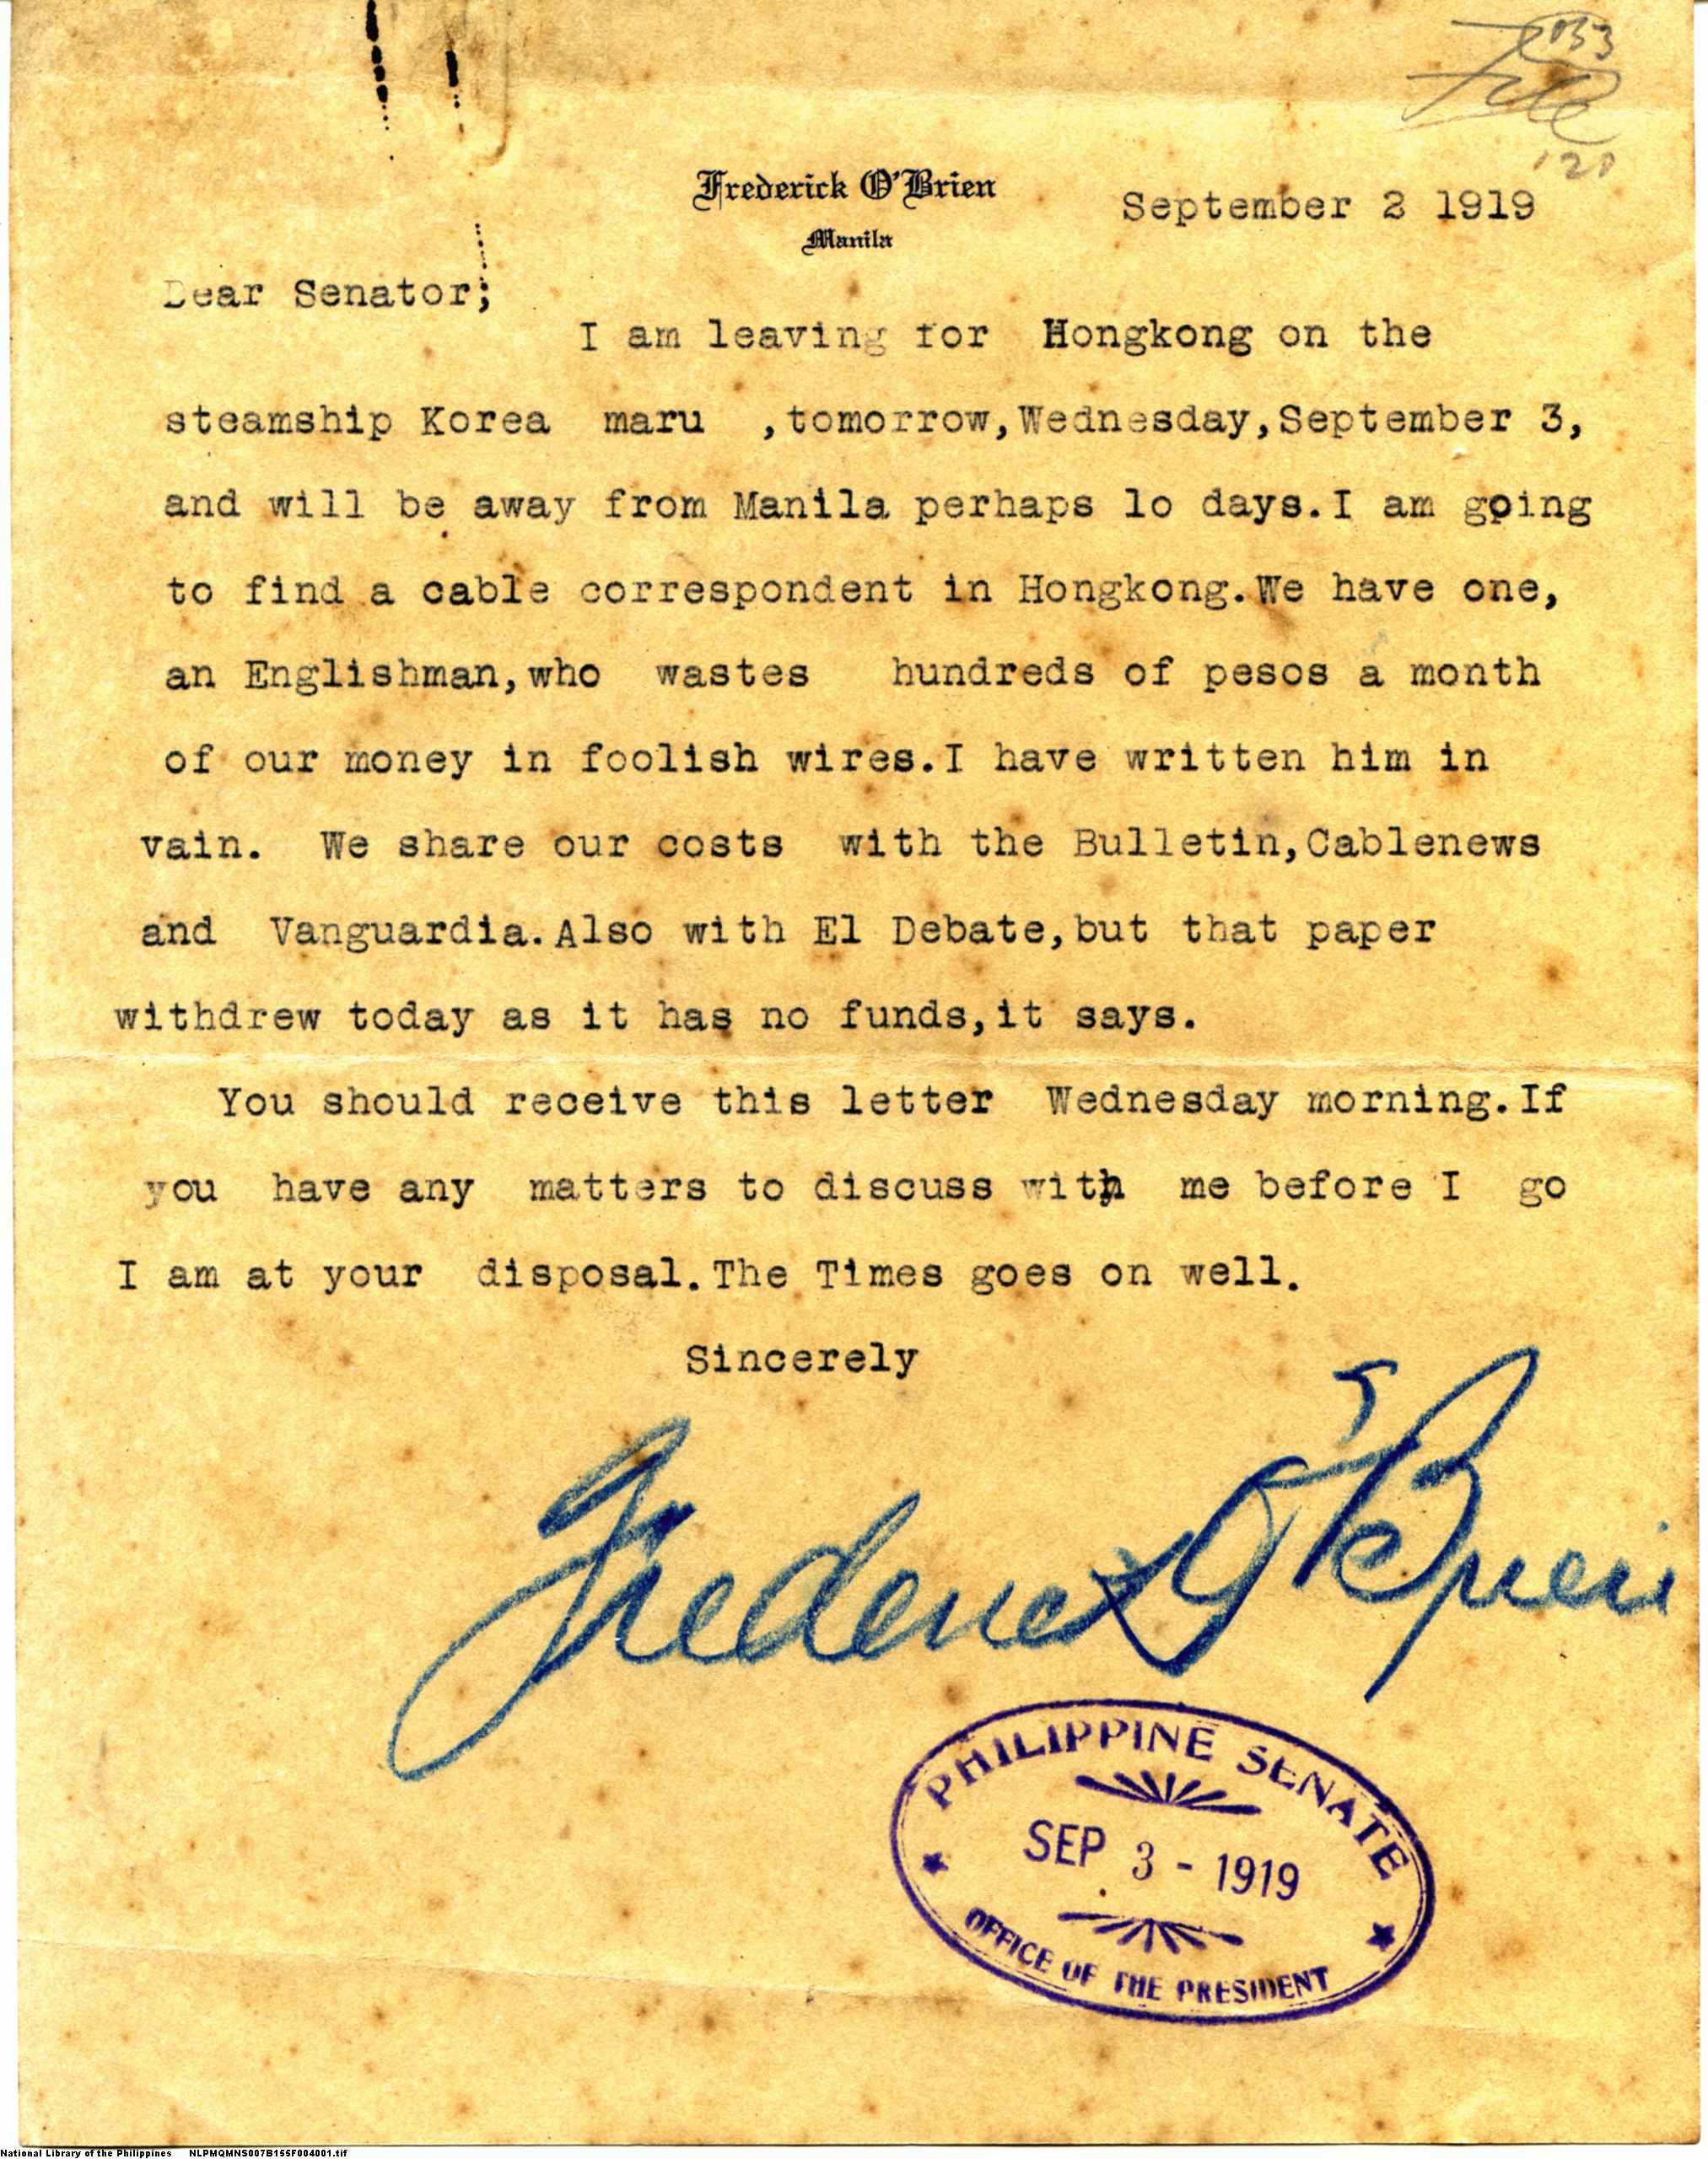 File
Frederick O'Brien
Manila
September 2 1919
Dear Senator;
I am leaving for Hongkong on the
steamship Korea maru ,tomorrow,Wednesday,September 3,
and will be away from Manila perhaps lo days.I am going
to find a cable correspondent in Hongkong.We have one,
an Englishman,who wastes hundreds of pesos a month
of our money in foolish wires.I have written him in
vain. We share our costs with the Bulletin,Cablenews
and Vanguardia.Also with El Debate,but that paper
withdrew today as it has no funds,it says.
You should receive this letter Wednesday morning.If
you have any matters to discuss with me before I go
I am at your disposal.The Times goes on well.
Sincerely
Frederick O'Brien
PHILIPPINE SENATE
SEP 3 - 1919
OFFICE OF THE PRESIDENT
National Library of the Philippines NLPMQMNS007B155F004001.tif